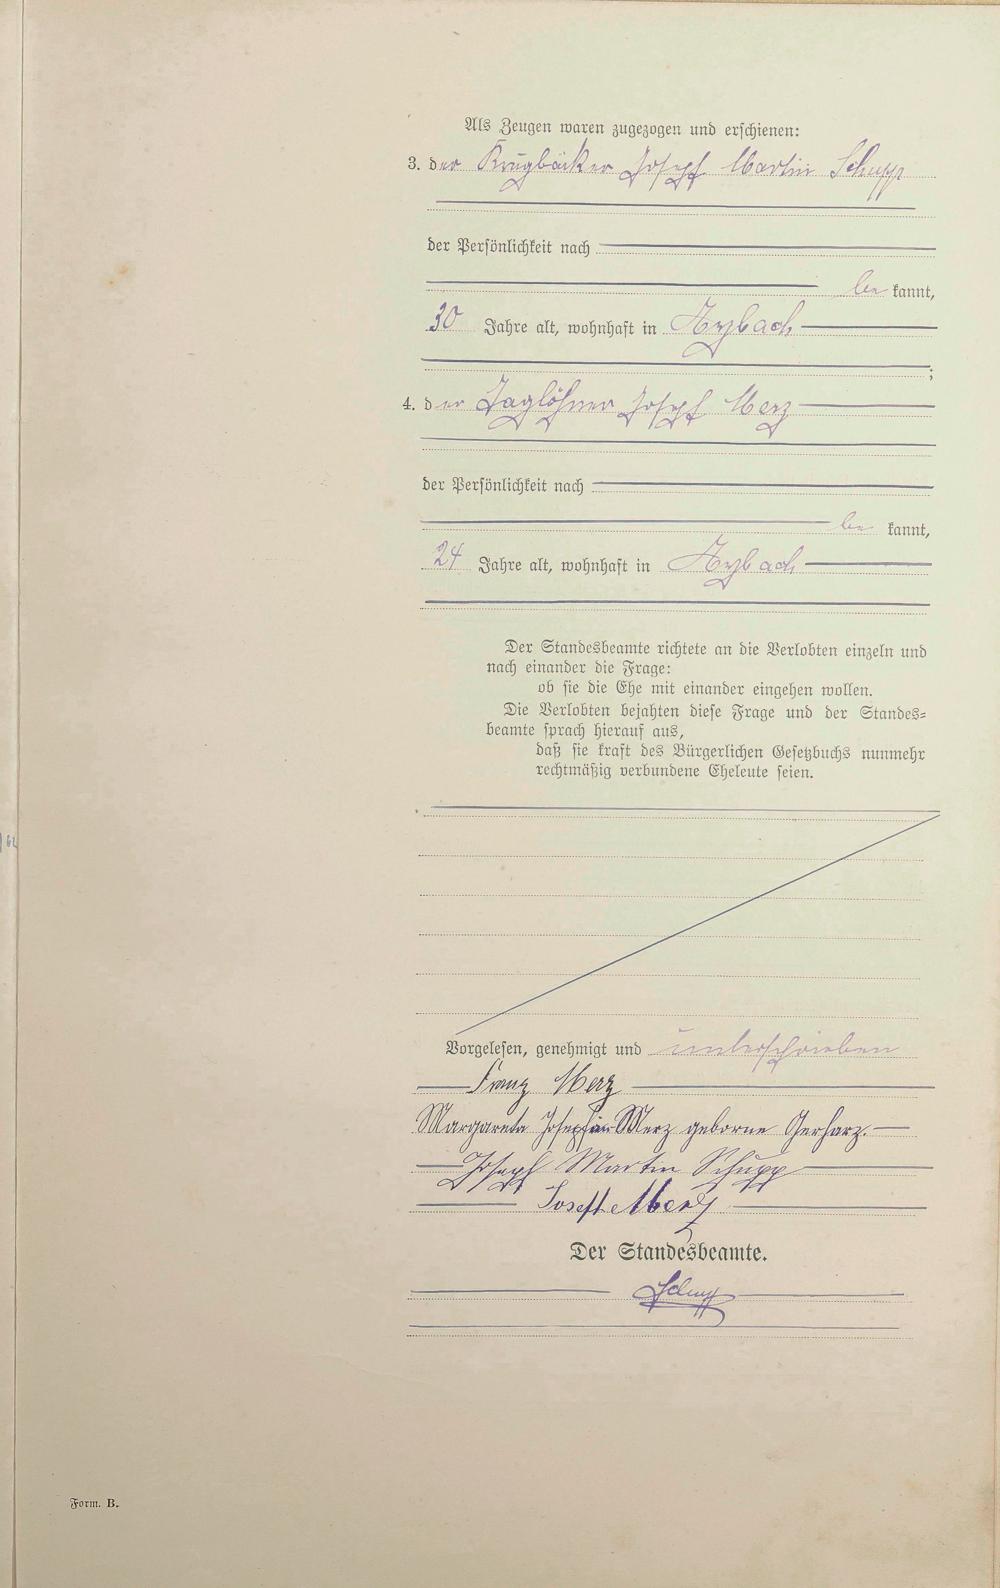 Als Zeugen waren zugezogen und erschienen:
3. der Krugbäcker Joseph Martin Schupp
der Persönlichkeit nach
be kannt,
30 Jahre alt, wohnhaft in Arzbach
;
4. der Taglöhner Joseph Merz
der Persönlichkeit nach
be kannt,
24 Jahre alt, wohnhaft in Arzbach
Der Standesbeamte richtete an die Verlobten einzeln und
nach einander die Frage:
ob sie die Ehe mit einander eingehen wollen.
Die Verlobten bejahten diese Frage und der Standes=
beamte sprach hierauf aus,
daß sie kraft des Bürgerlichen Gesetzbuchs nunmehr
rechtmäßig verbundene Eheleute seien.
Vorgelesen, genehmigt und unterschrieben
Franz Merz
Margareta Merz geborne Gerharz.
Joseph Martin Schupp
Josef Merz
Der Standesbeamte.
Form. B.